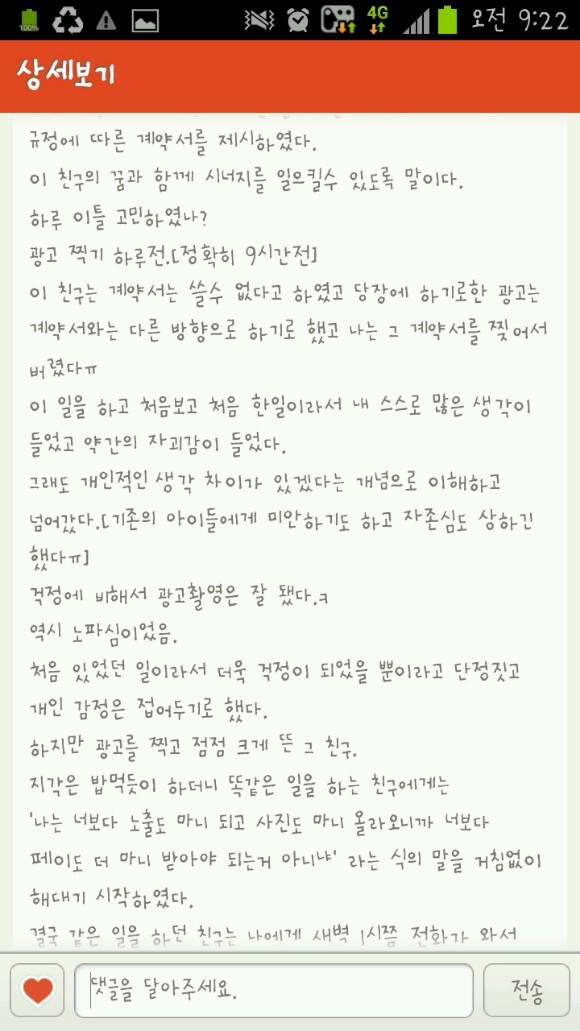 100%
4G
오전 9:22
상세보기
규정에 따른 계약서를 제시하였다.
이 친구의 꿈과 함께 시너지를 일으킬수 있도록 말이다.
하루 이틀 고민하였나?
광고 찍기 하루전.[정확히 9시간전]
이 친구는 계약서는 쓸수 없다고 하였고 당장에 하기로한 광고는
계약서와는 다른 방향으로 하기로 했고 나는 그 계약서를 찢어서
버렸다ㅠ
이 일을 하고 처음보고 처음 한일이라서 내 스스로 많은 생각이
들었고 약간의 자괴감이 들었다.
그래도 개인적인 생각 차이가 있겠다는 개념으로 이해하고
넘어갔다.[기존의 아이들에게 미안하기도 하고 자존심도 상하긴
했다ㅠ]
걱정에 비해서 광고촬영은 잘 됐다.ㅋ
역시 노파심이었음.
처음 있었던 일이라서 더욱 걱정이 되었을 뿐이라고 단정짓고
개인 감정은 접어두기로 했다.
하지만 광고를 찍고 점점 크게 뜬 그 친구.
지각은 밥먹듯이 하더니 똑같은 일을 하는 친구에게는
'나는 너보다 노출도 마니 되고 사진도 마니 올라오니까 너보다
페이도 더 마니 받아야 되는거 아니냐' 라는 식의 말을 거침없이
해대기 시작하였다.
결국 같은 일을 하던 친구는 나에게 새벽 1시쯤 전화가 와서
댓글을 달아주세요.
전송